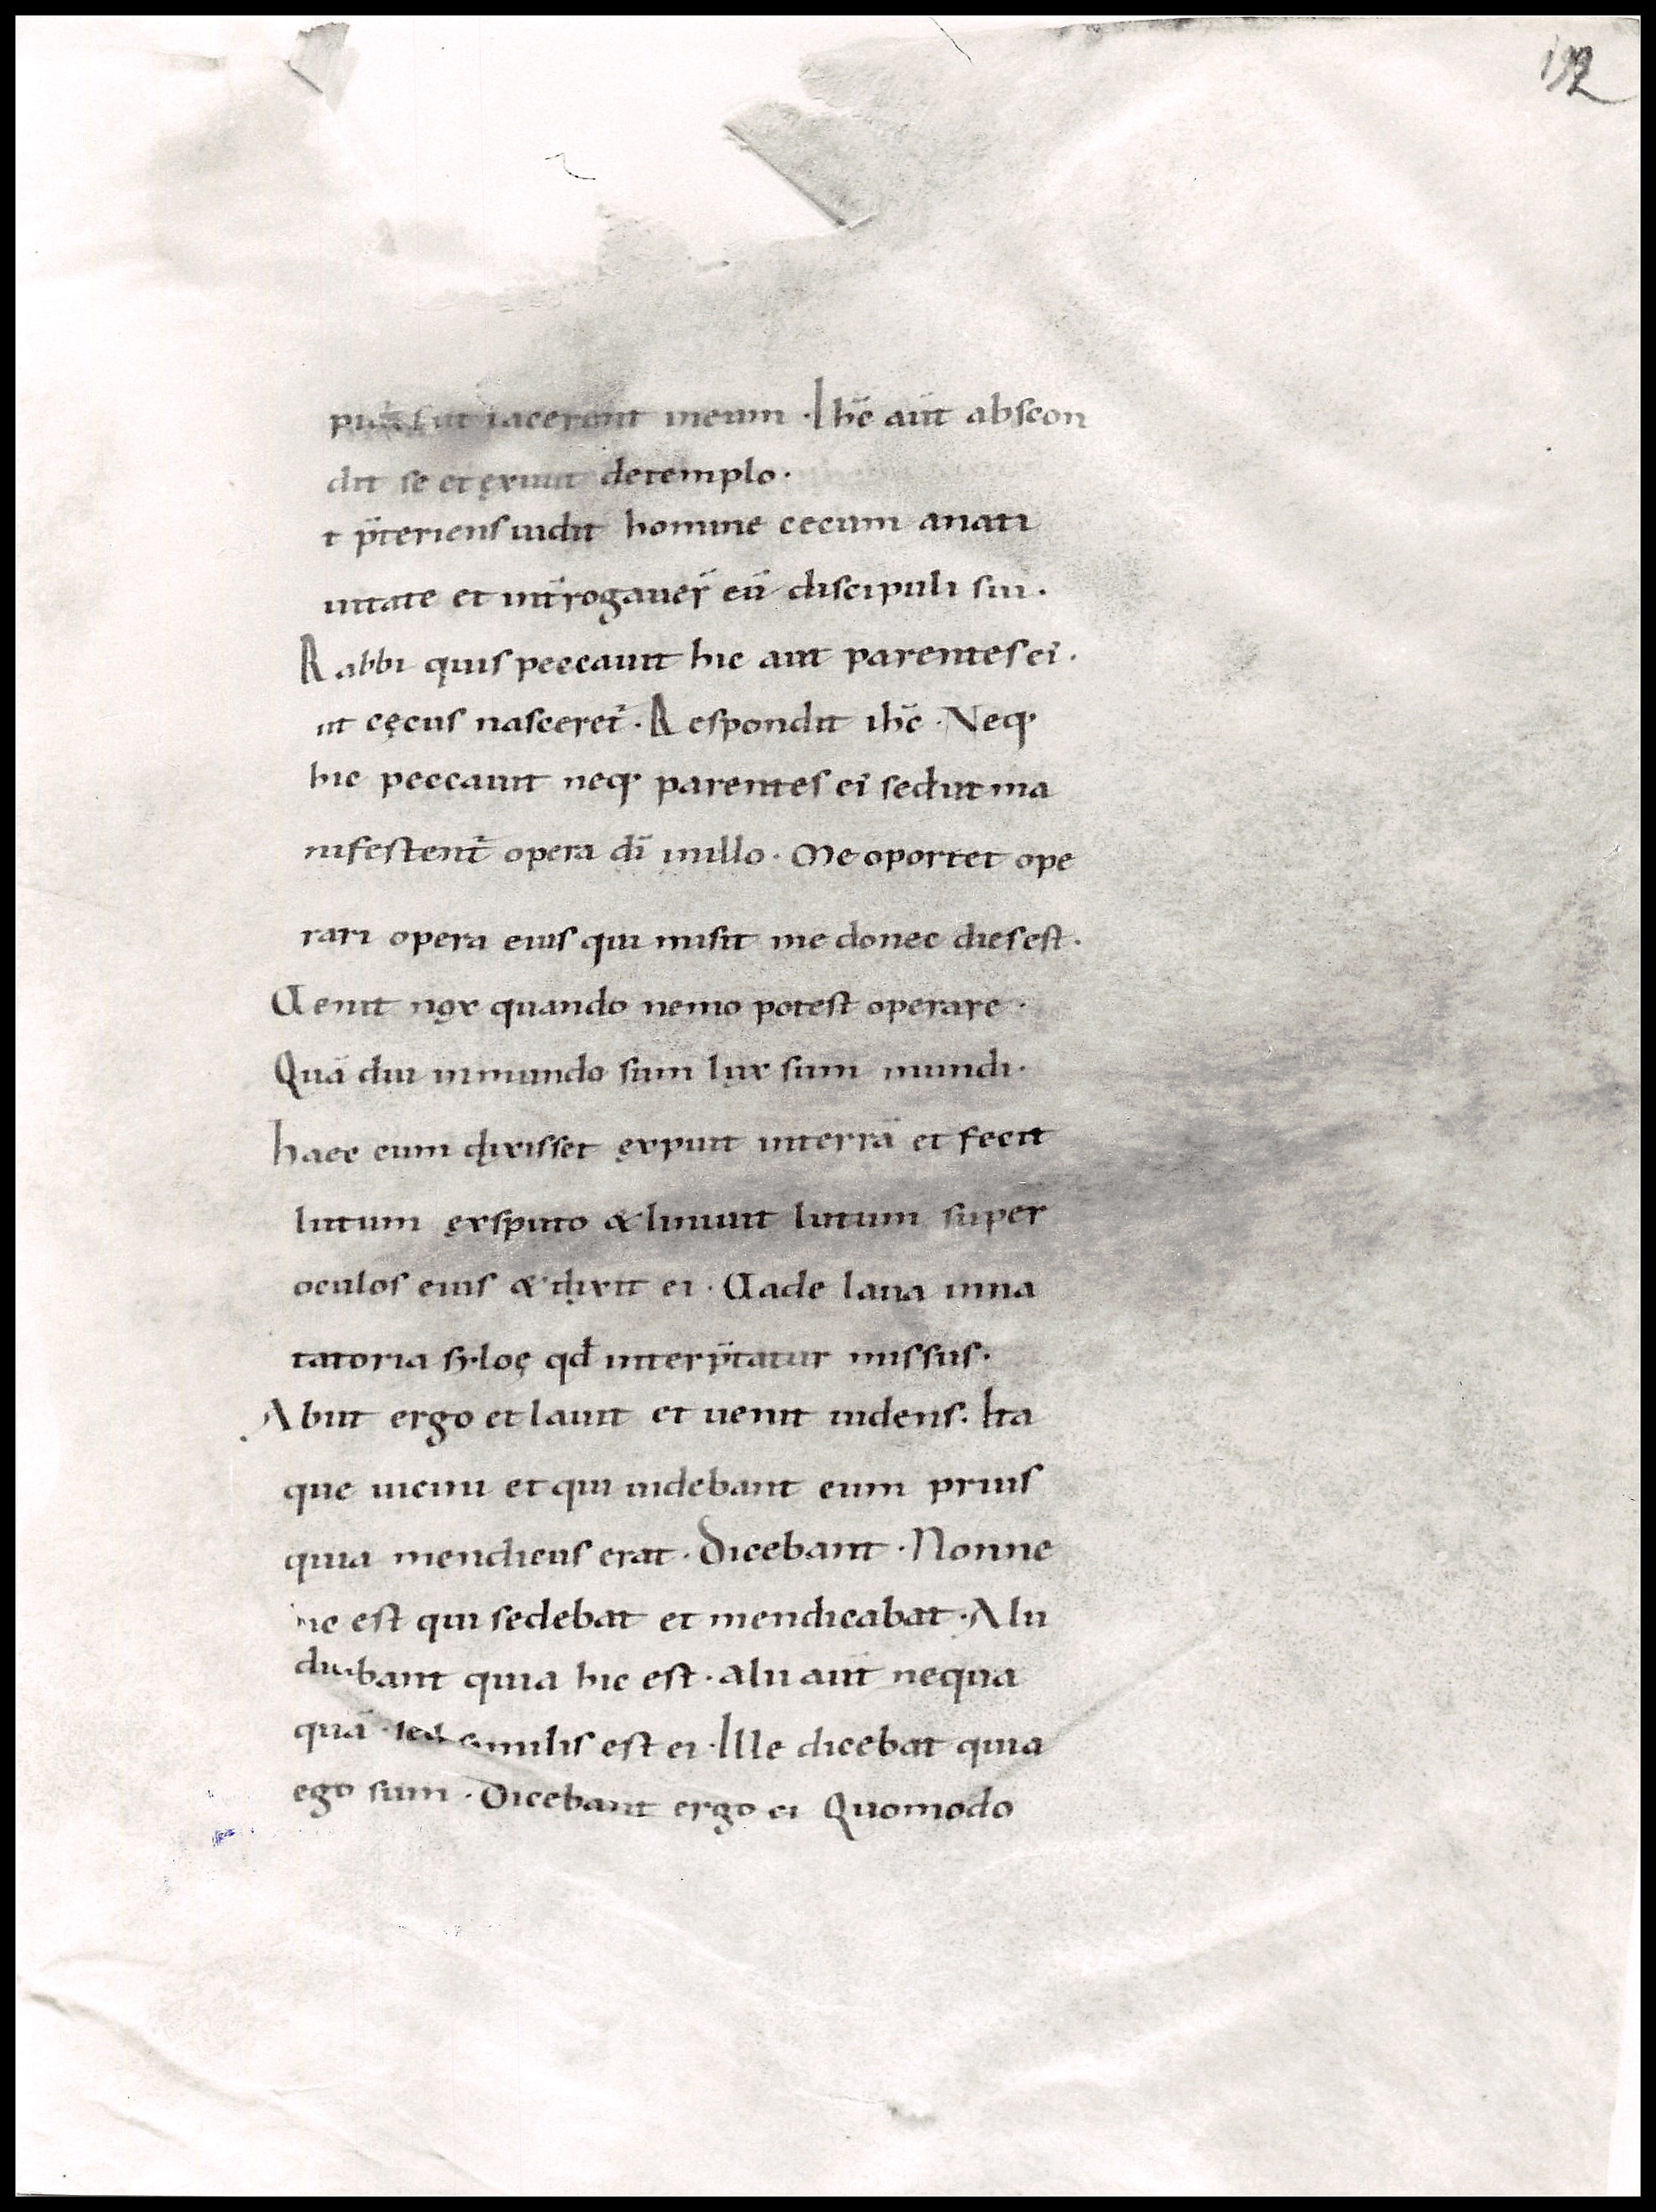 192
ut iacerent ineum · Ihc̄ aut̄ abscon
dit se et exiuit detemplo ·
t p̄teriens uidit homine cecum anati
uitate et int̄rogauer̄ eū discipuli sui ·
Rabbi quis peccauit hic aut parentes eī ·
ut cęcus nasceret̄ · Respondit ihc̄ · Neq·
hic peccauit neq· parentes eī sed ut ma
nifestent̄ opera dī inillo · Me oportet ope
rari opera eius qui misit me donec dies est ·
Uenit nox quando nemo potest operare ·
Quā diu inmundo sum lux sum mundi ·
haec cum dixisset expuit interrā et fecit
lutum exsputo & liniuit lutum super
oculos eius & dixit ei · Uade laua inna
tatoria syloę qd̄ interp̄tatur missus ·
Abiit ergo et lauit et uenit uidens · Ita
que uicini et qui uidebant eum prius
quia mendicus erat · Dicebant · Nonne
hic est qui sedebat et mendicabat · Alii
dicebant quia hic est · alii aut̄ nequa
quā · sed similis est ei · Ille dicebat quia
ego sum · Dicebant ergo ei Quomodo